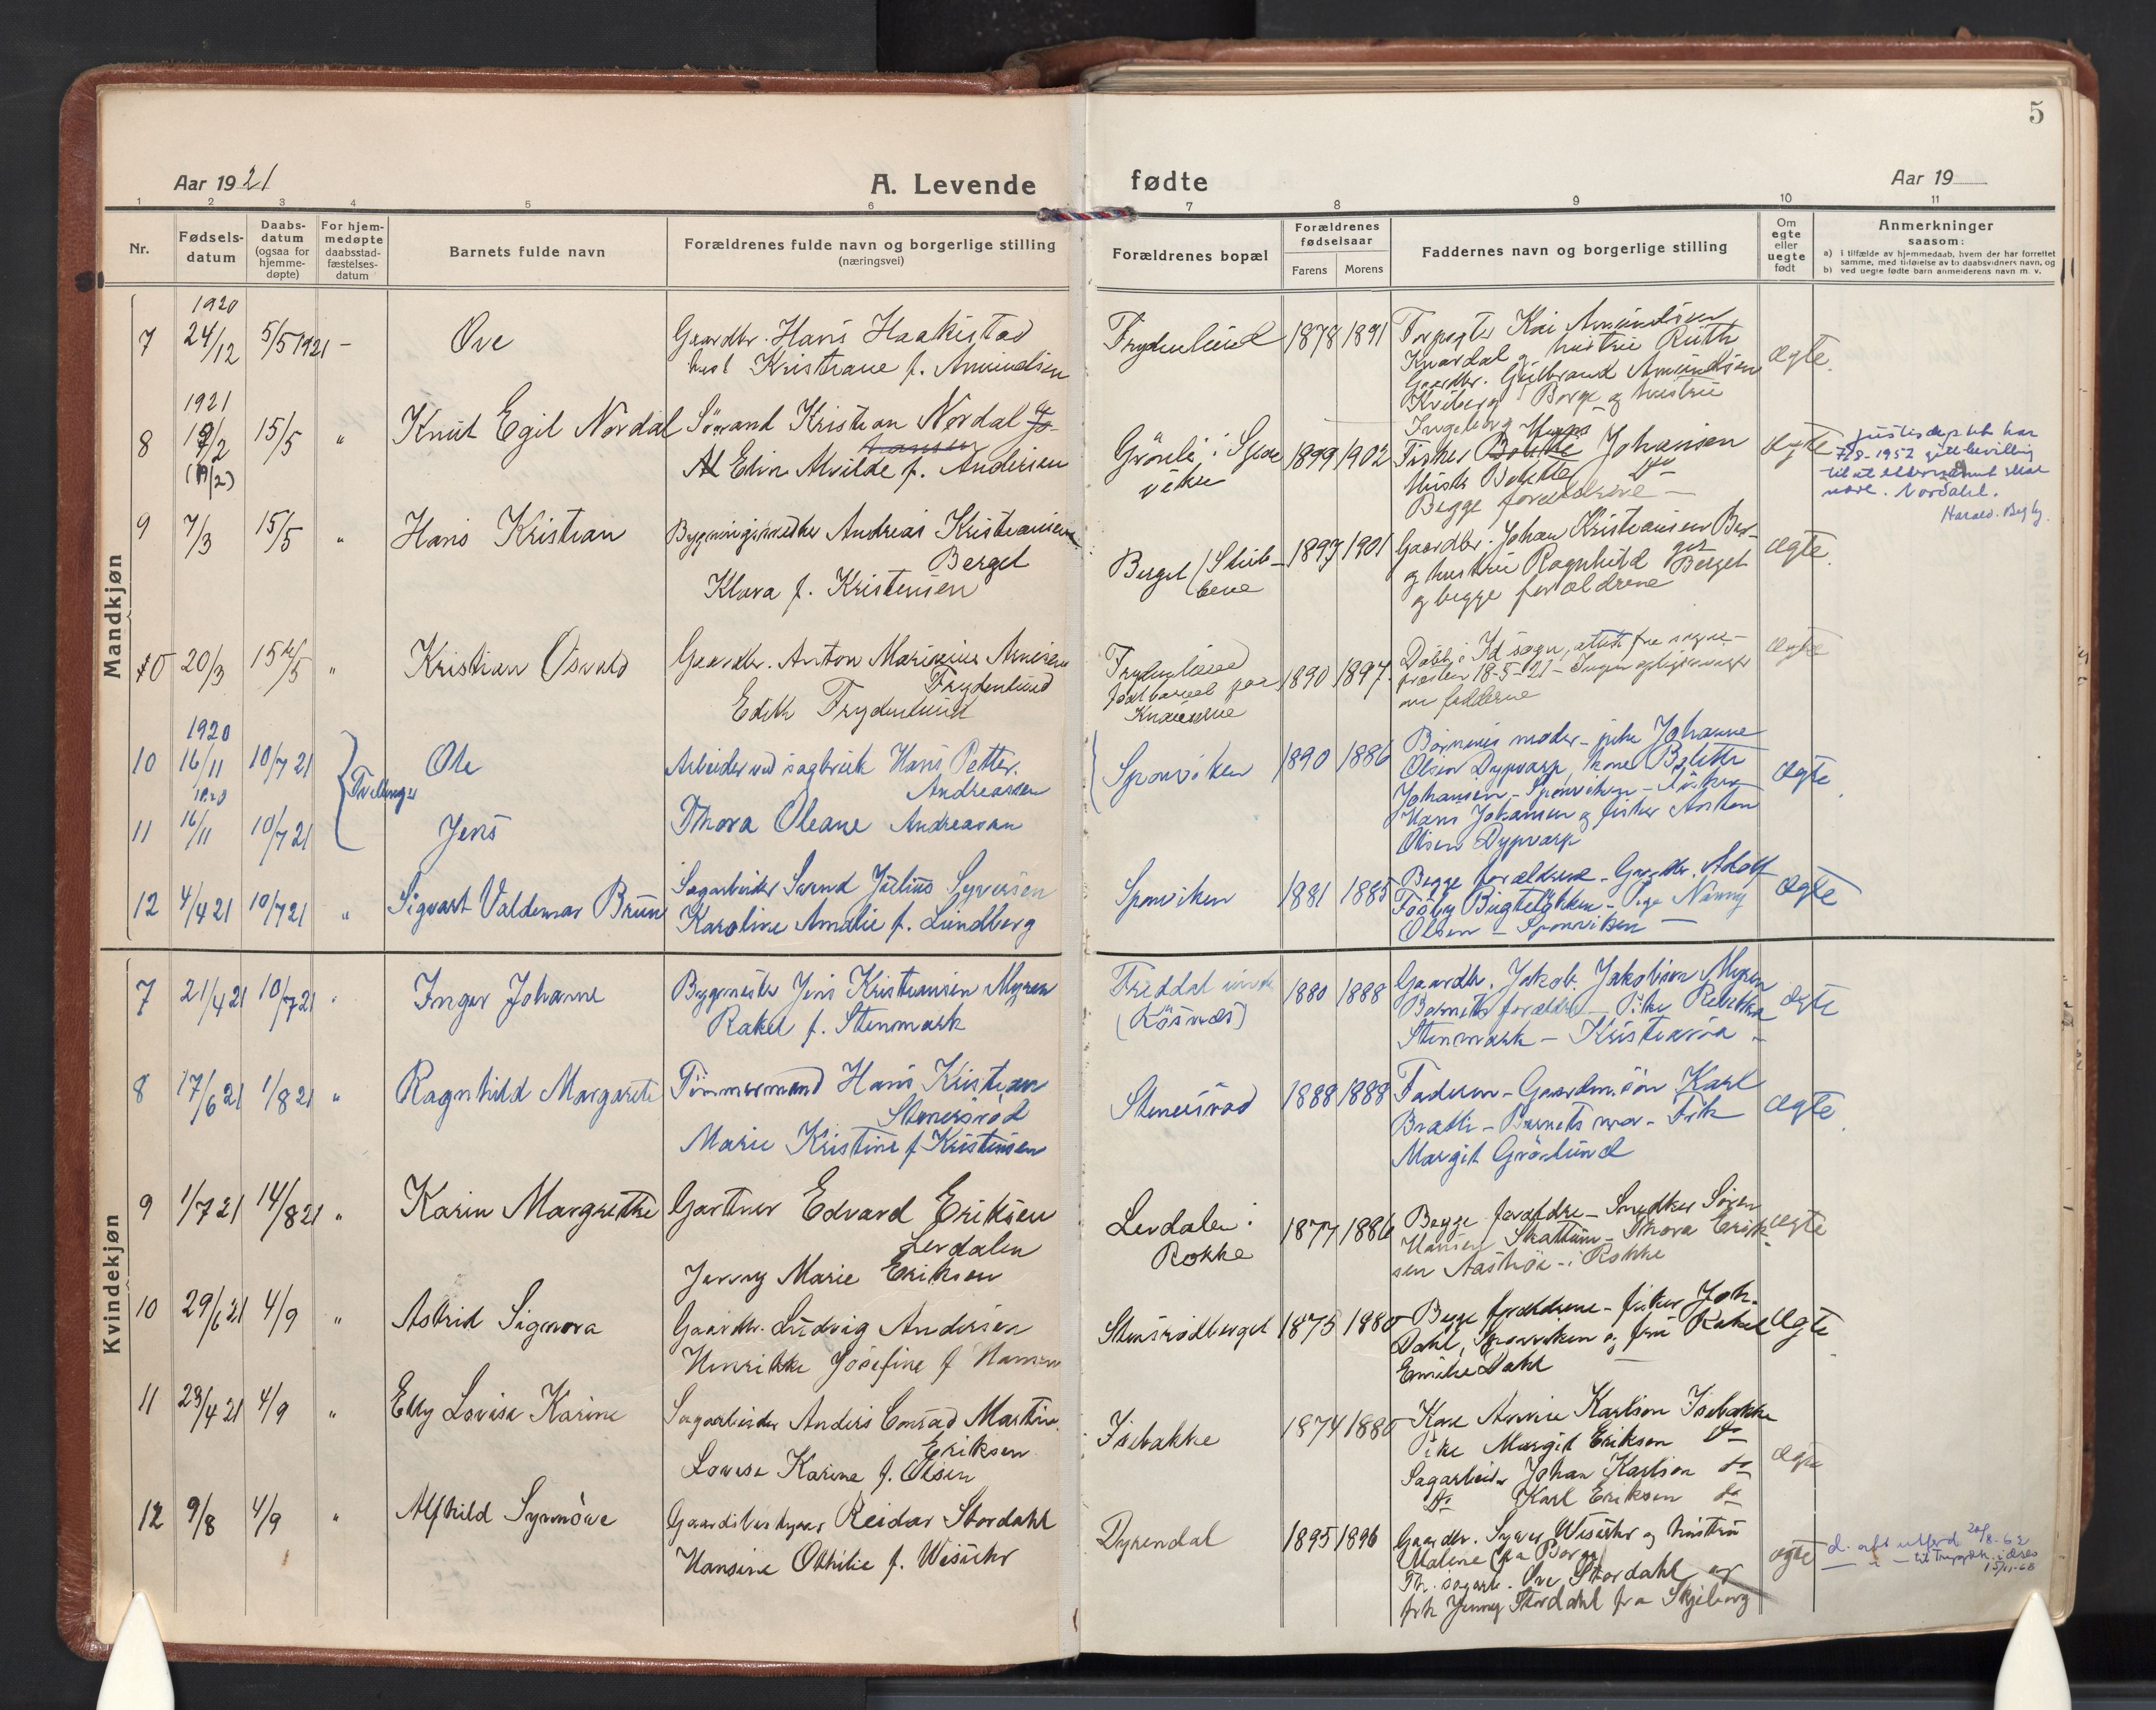 5
Aar 1921
A. Levende
fødte
Aar 19
1 2 3 4 5 6 7 8 9 10 11
Nr.
Fødsels-
datum
Daabs-
datum
(ogsaa for
hjemme-
døpte)
For hjem-
medøpte
daabsstad-
fæstelses-
datum
Barnets fulde navn
Forældrenes fulde navn og borgerlige stilling
(næringsvei)
Forældrenes bopæl
Forældrenes
fødselsaar
Farens Morens
Faddernes navn og borgerlige stilling
Om
egte
eller
uegte
født
Anmerkninger
saasom:
a) I tilfælde av hjemmedaab, hvem der har forrettet
samme, med tilføielse av to daabsvidners navn, og
b) ved uegte fødte barn anmelderens navn m. v.
Mandkjøn
1920
7 24/12 5/5 1921 – Ove
Gaardbr. Hans Haakistad
Kristiane f. Amundsen
Frydenlund 1878 1891
Forpagter Kai Amundsen
Knardal og hustru Ruth
Gaardbr. Gulbrand Amundsen
Kviberg Borge og hustru
Ingeborg
ægte.
1921
8 15/5 " Knut Egil Nordal
(17/2)
Sømand Kristian Nordal Jo-
hansen
Elin Alvilde f. Andersen
Grönli i 1899 1902
Fisker Johansen
Begge forældrene –
ægte
7/8-1952 gitt bevilling
til at etternavnet skal
være. Nordahl.
Harald. Begby.
9 7/3 15/5 " Hans Kristian
Bygningssnedker Andreas Kristiansen
Berget
Klara f. Kristensen
Berget 1897 1901
Gaardbr. Johan Kristiansen Ber-
get
og hustru Ragnhild Berget
og begge forældrene
ægte.
10 20/3 15/5 " Kristian Osvald
Gaardbr. Anton Marinius Arnesen
Frydenlund
Edith Frydenlund
Frydenlund 1890 1897.
Døbt i Id sogn, attest fra sogne-
presten 18-5-21 – Ingen
om fadderne
ægte
1920
10 16/11 10/7 21 Ole
Tvillinger
Arbeider ved sagbruk Hans Petter.
Andreassen
Thora Oleane Andreassen
Sponviken 1890 1886
Børnenes moder – pike Johanne
Olsen Dypvarp, kone
Johansen – Sponviken – Fisker
Hans Johansen og fisker Anton
Olsen Dypvarp
ægte.
1920
11 16/11 10/7 21 Jens
12 4/4 21 10/7 21 " Sigvart Valdemar Bruun
Sagarbeider Svend Julius Syversen
Karoline Amalie f. Lundberg
Sponviken 1881 1885
Begge forældrene – Gaardbr. Adolf
Fosby – Pige Nanny
Olsen – Sponviken –
ægte
Kvindekjøn
7 21/4 21 10/7 21 " Inger Johanne
Bygmester Jens Kristiansen Myren
Rakel f. Stenmark
(Røsnæs) 1880 1888
Gaardbr. Jakob Jakobsen Myren
Barnets forældre – Pike Rebekka
Stenmark – Kristiania –
ægte
8 17/6 21 1/8 21 " Ragnhild Margarete
Tömmermand Hans Kristian
Stenersrød
Marie Kristine f. Kristensen
Stenersrød 1888 1888
Faderen – Gaardm.søn Karl
Brathe – Barnets mor – Frk
Margit Grönlund
ægte.
9 1/7 21 14/8 21 " Karin Margrethe
Gartner Edvard Eriksen
Lerdalen
Jenny Marie Eriksen
Lerdalen i
Rokke
1877 1886
Begge forældre – Snedker Søren
Hansen Skattum – Thora Erik-
sen Aaströe – i Rokke
ægte
10 29/6 21 4/9 " Astrid Signora
Gaardbr. Ludvig Andersen
Henrikke Josefine f. Hansen
Stensrødberget 1875 1880
Begge forældrene – fisker Joh.
Dahl, Sponviken og fru Rakel
Emilie Dahl
ægte.
11 23/4 21 4/9 " Elly Lovise Karine
Sagarbeider Anders Conrad Martin.
Eriksen
Lovise Karine f. Olsen
Isebakke 1874 1880
Kone Annie Karlson Isebakke
Pike Margit Eriksen do
Sagarbeider Johan Karlson do
do Karl Eriksen do
ægte
12 9/8 4/9 " Alfhild Synnöve
Gaardsbestyrer Reidar Stordahl
Hansine Othilie f. Wisuhr
Dyrendal 1895 1896
Gaardbr. Syver Wisuhr og hustru
Maline fra Borge
Ove Stordahl og
frk Jenny Stordahl fra Skjeberg
ægte
d. att utferd 20/8-62
15/11-68